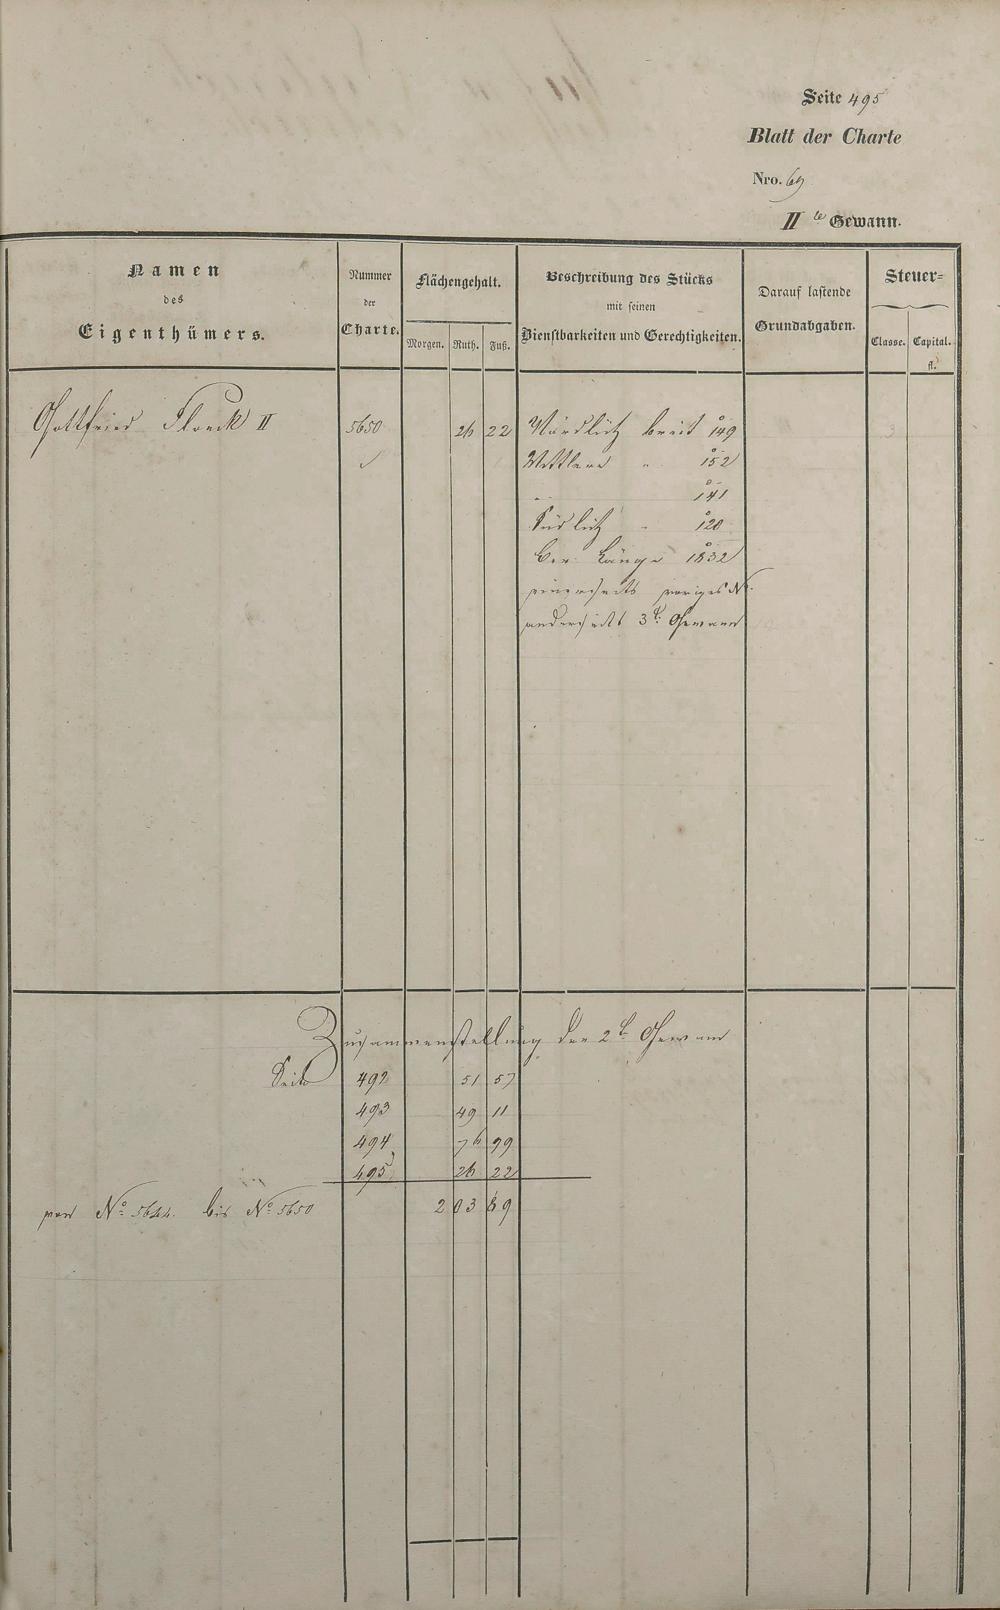 Seite 495
Blatt der Charte
Nro. 69
II te Gewann.
Namen
des
Eigenthümers.
Nummer
der
Charte.
Flächengehalt.
Morgen. Ruth. Fuß.
Beschreibung des Stücks
mit seinen
Dienstbarkeiten und Gerechtigkeiten.
Darauf lastende
Grundabgaben.
Steuer=
Classe. Capital.
fl.
Gottfried Floeck II 5650 26 22 Nördlich breit 149
Mittlere " 152
" 141
Südlich " 120
Länge 1832
einerseits voriges No.
anderseits 3te Gewann
Zusammenstellung der 2te Gewann
Seite 492 51 57
493 49 11
494 76 99
495 26 22
von No 5644 bis No 5650 203 89